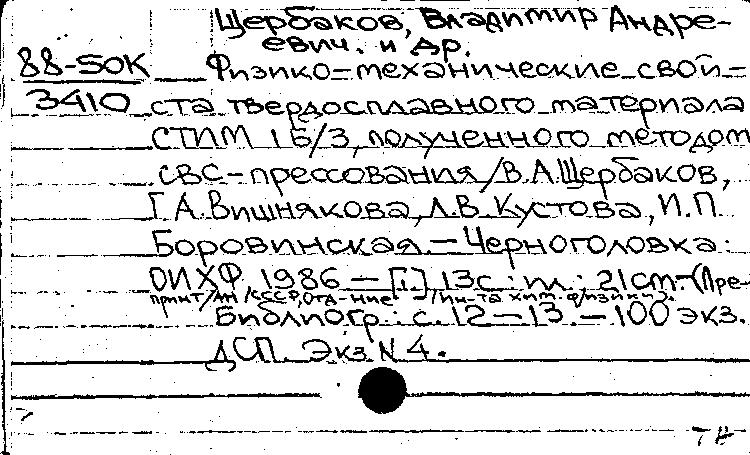 Щербаков, Владимир Андре-
евич. и др.
88-50K Физико-механические свой-
3410 ста твердосплавного материала
СТИМ 1Б/3, полученного методом
СВС-прессования/В.А.Щербаков,
Г.А.Вишнякова, Л.В.Кустова, И.П.
Боровинская.-Черноголовка:
ОИХФ, 1986 - [1], 13с.: ил.; 21см-(Пре-
принт/АН СССР, Отд-ние /Ин-та хим. физики).
Библиогр.: с. 12-13. - 100 экз.
ДСП. Экз N 4.